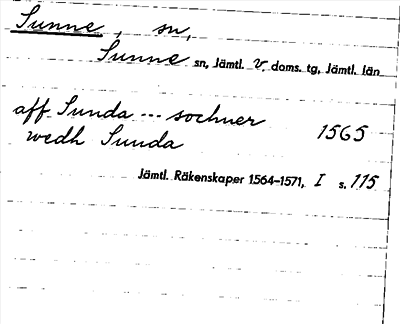 Sunne, sn,
Sunne sn, Jämtl. v. doms. tg, Jämtl. län
aff Sunda --- sochner 1565
wedh Sunda
Jämtl. Räkenskaper 1564-1571, I s. 115